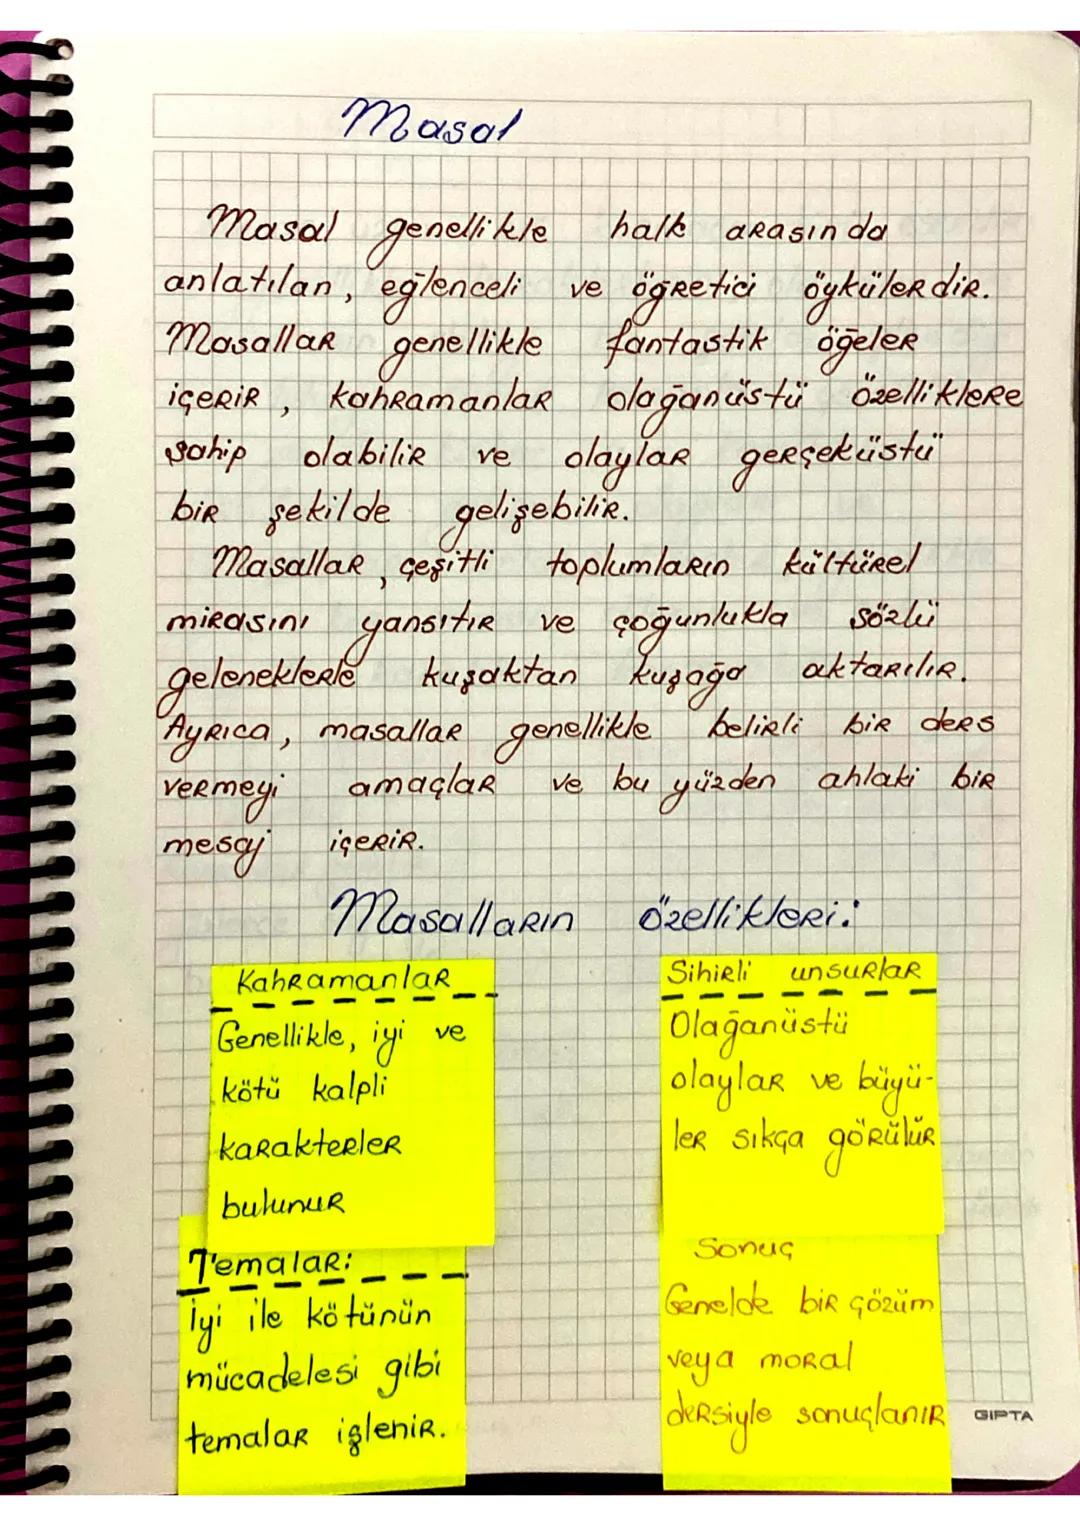 Masal
Masal genellikle halk arasında
anlatılan, eğlenceli ve öğretici öykülerdir.
Masallar genellikle fantastik öğeler
içerir, kahramanlar olağanüstü özelliklere
sahip olabilir ve olaylar gerçeküstü
bir şekilde gelişebilir.
Masallar, çeşitli toplumların kültürel
mirasını yansıtır ve çoğunlukla sözlü
geleneklerle kuşaktan kuşağa aktarılır.
Ayrıca, masallar genellikle belirli bir ders
vermeyi amaçlar ve bu yüzden ahlaki bir
mesaj içerir.
Masalların özellikleri:
Kahramanlar
Genellikle, iyi ve
kötü kalpli
karakterler
bulunur
Temalar:
İyi ile kötünün
mücadelesi gibi
temalar işlenir.
Sihirli unsurlar
Olağanüstü
olaylar ve büyü-
ler sıkça görülür
Sonuç
Genelde bir çözüm
veya moral
dersiyle sonuçlanır
GIPTA